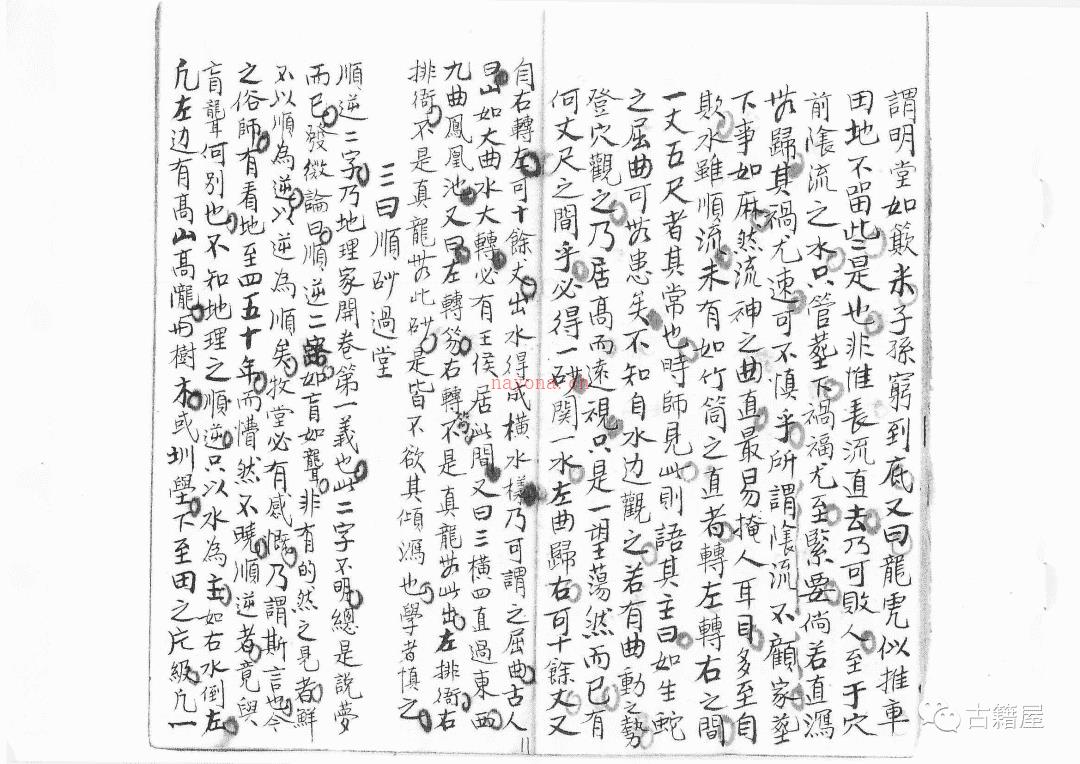 謂明堂如欺米子孫窮到底又曰龍虎似推車
田地不留些是也非惟長流直去乃可敗人至于穴
前陰流之水只管葬下禍福尤至緊要倘若直瀉
無歸其禍尤速可不慎乎所謂陰流不顧家葬
下事如麻然流神之曲直最易掩人耳目多至自
欺水雖順流未有如竹筒之直者轉左轉右之間
一丈五尺者其常也時師見此則語其主曰如生蛇
之屈曲可無患矣不知自水边觀之若有曲動之勢
登穴觀之乃居高而遠視只是一望蕩然而已有
何丈尺之間乎必得一砂関一水左曲歸右可十餘丈又
自右轉左可十餘丈出水得成橫水樣乃可謂之屈曲古人
曰山如大曲水大轉必有王侯居此間又曰三橫四直過東西
九曲鳳凰池又曰左轉右轉不是真龍無此出左排衙右
排衙不是真龍無此砂是皆不欲其傾瀉也學者慎之
三曰順砂過堂
順逆二字乃地理家開卷第一義也此二字不明總是說夢
而已發微論曰順逆二字如盲如聾非有的然之見者鮮
不以順為逆以逆為順矣牧堂必有感慨乃謂斯言也今
之俗師有看地至四五十年而懵然不曉順逆者竟與
盲聾何別也不知地理之順逆只以水為主如右水倒左
凡左边有高山高隴與樹木或圳壆下至田之片級凡一
nayona.cn
古籍屋